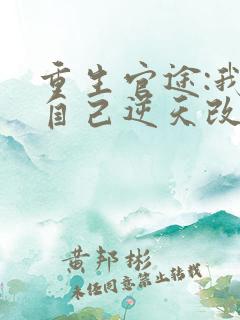 重生官途:我
自己逆天改
黄邦彬
未经同意禁止转载